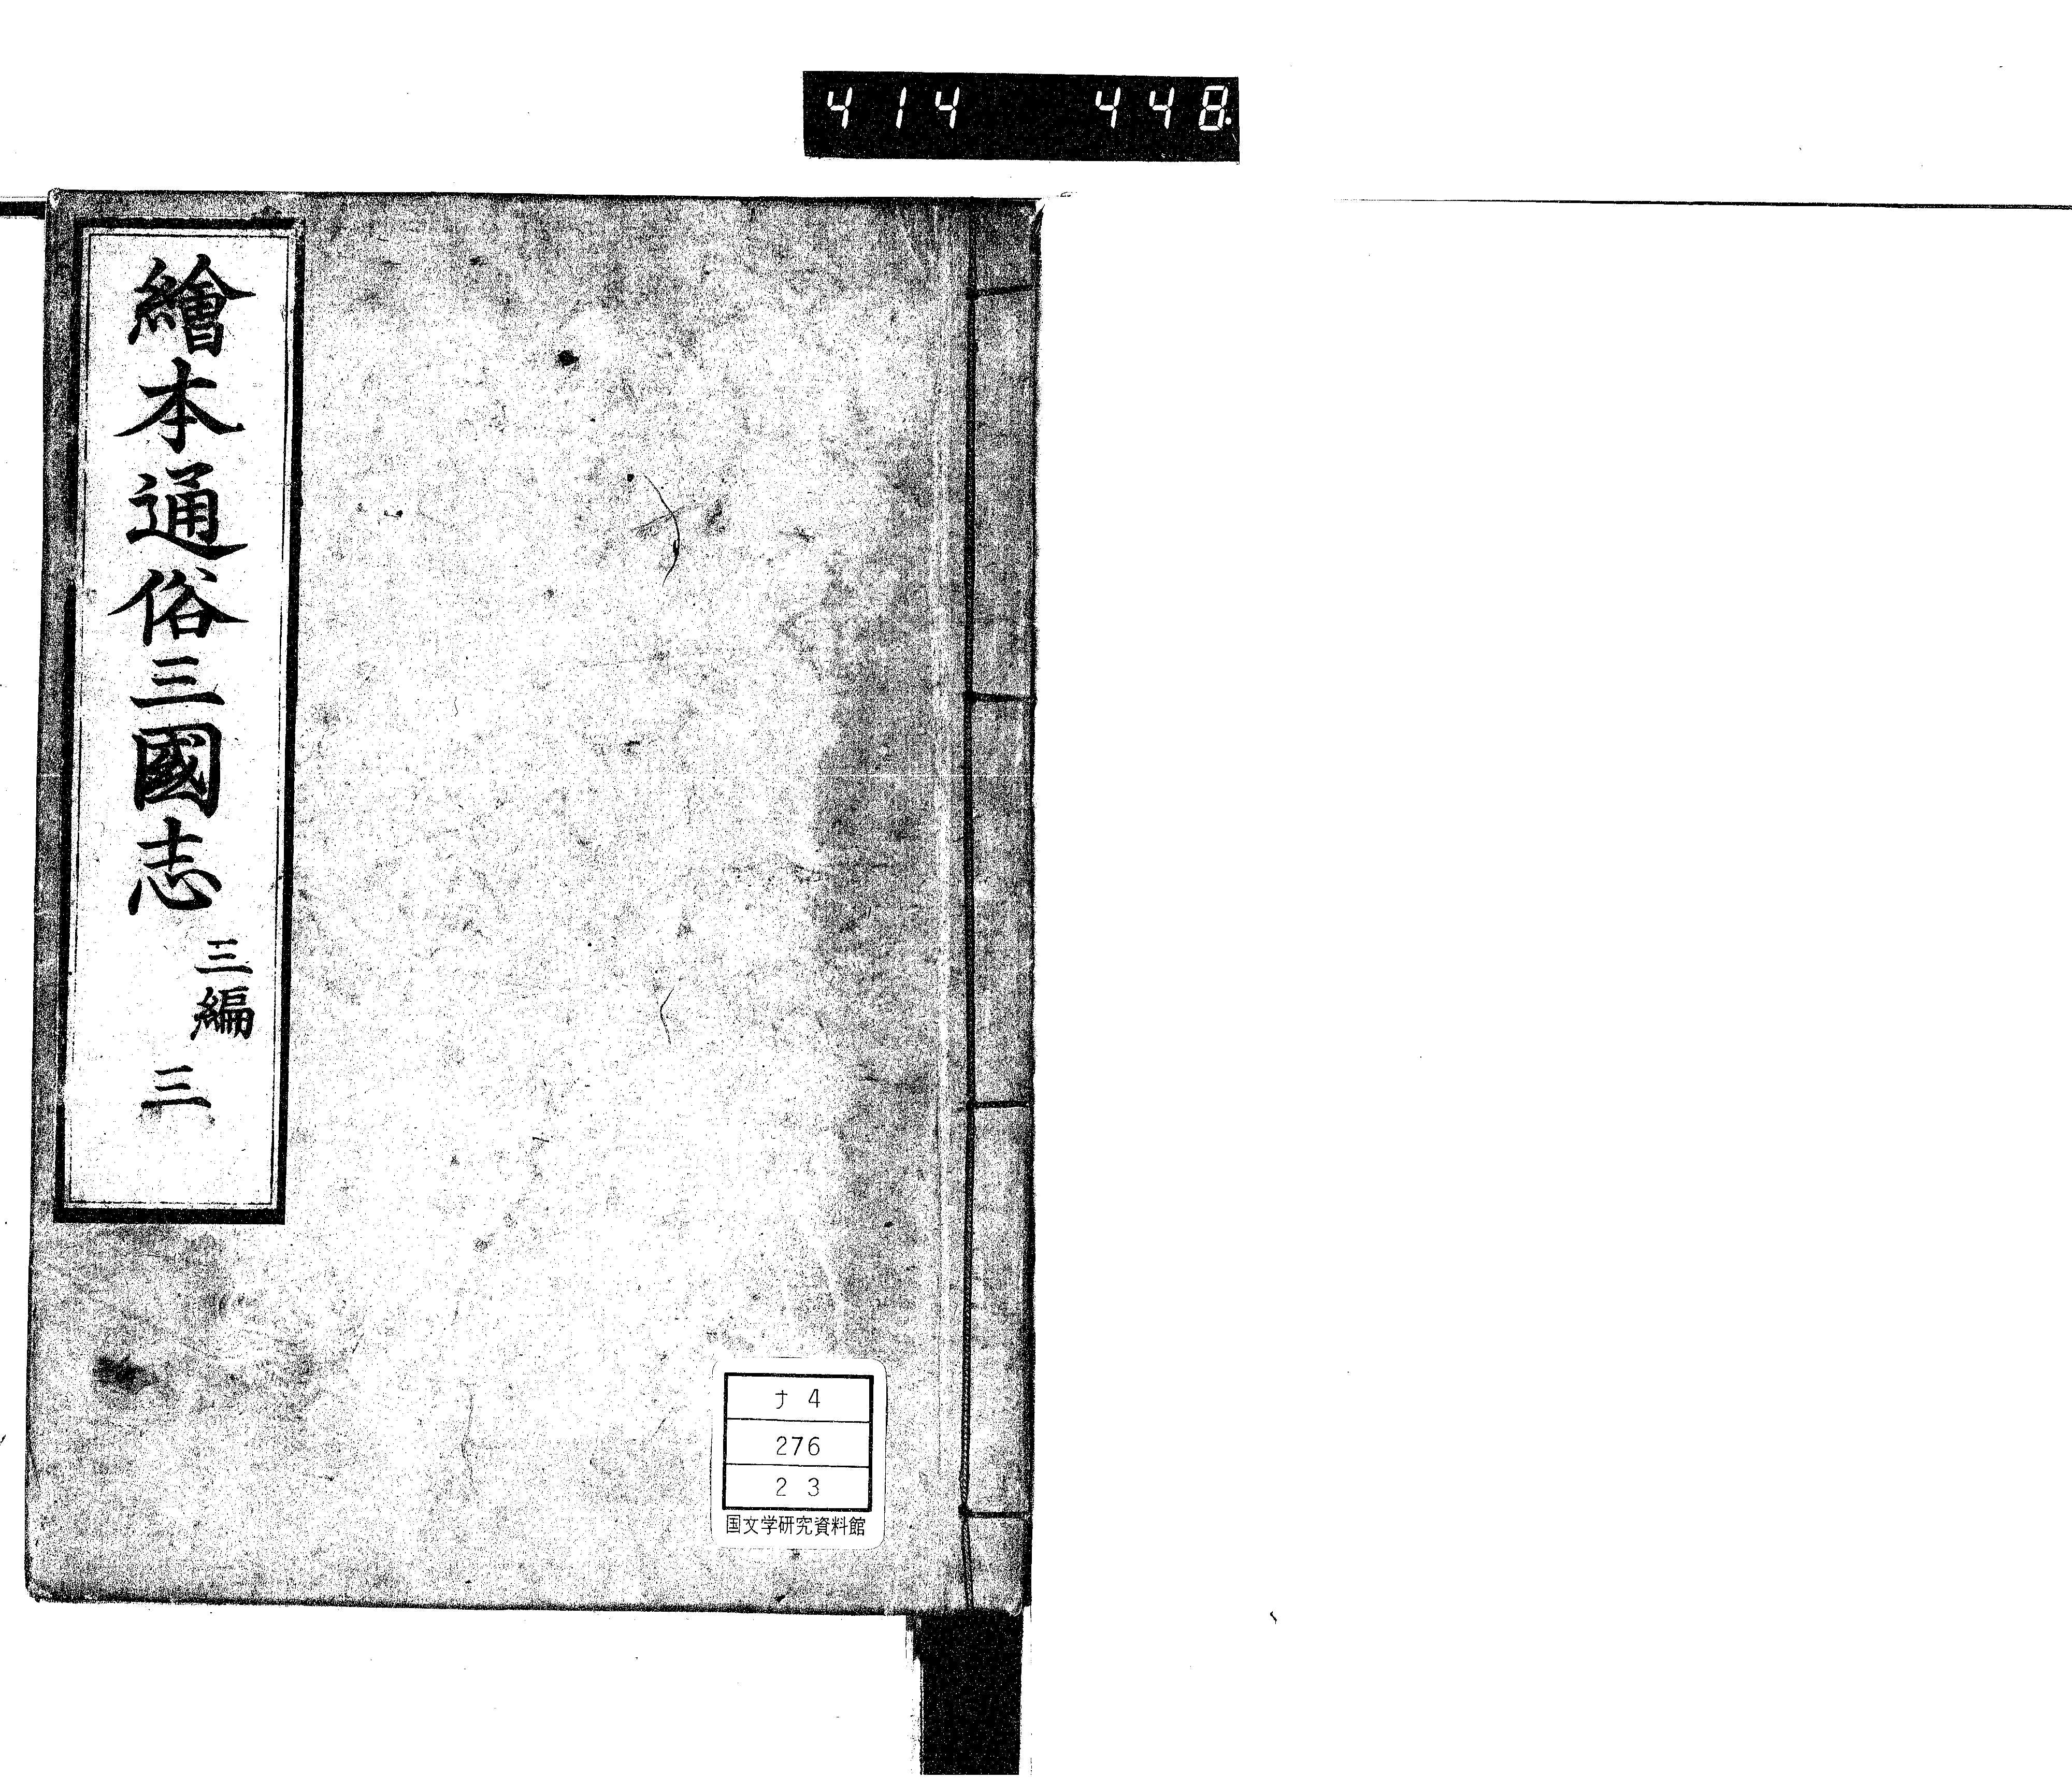 414 448.
繪本通俗三國志
三編
三
ナ 4
276
2 3
国文学研究資料館